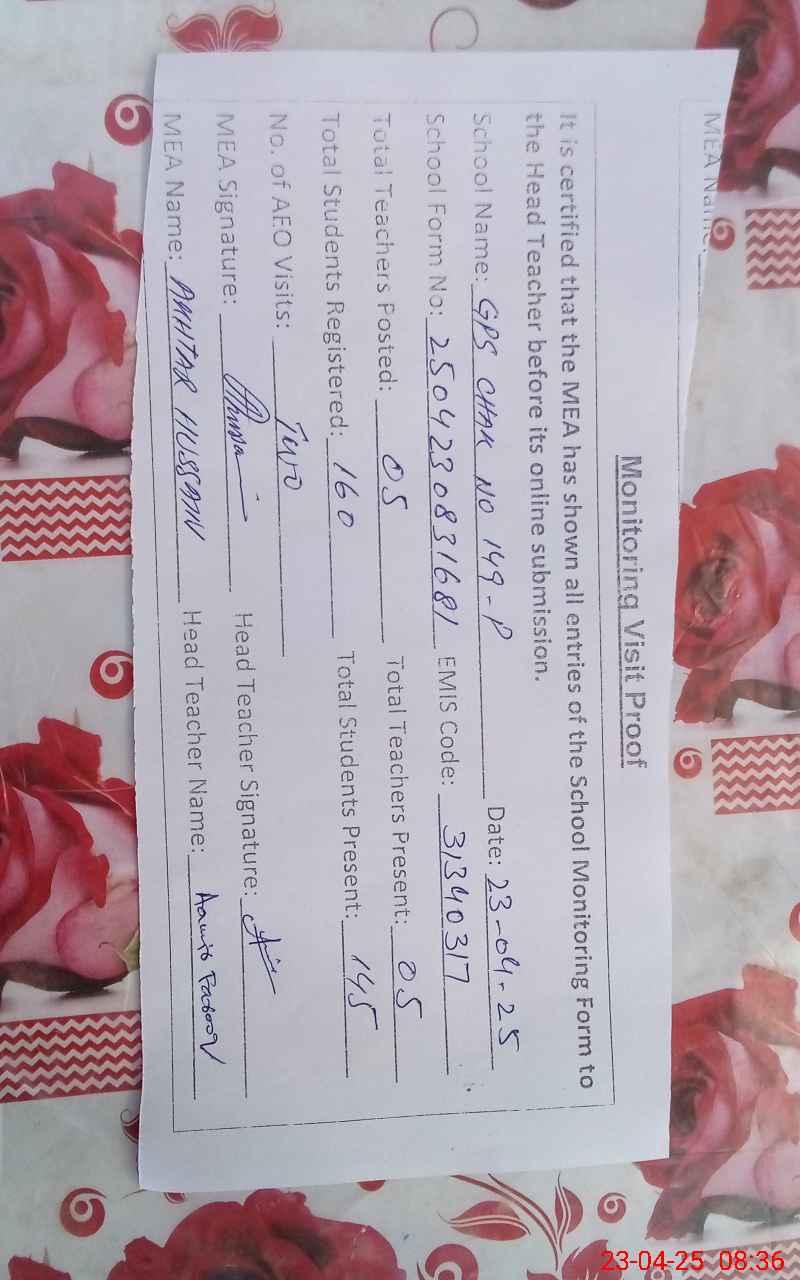 MEA Name:
Monitoring Visit Proof
It is certified that the MEA has shown all entries of the School Monitoring Form to
the Head Teacher before its online submission.
School Name: GPS CHAK NO 149-P Date: 23-04-25
School Form No: 250423083 1681 EMIS Code: 31340317
Total Teachers Posted: 05 Total Teachers Present: 05
Total Students Registered: 160 Total Students Present: 145
No. of AEO Visits: Two
MEA Signature: Head Teacher Signature:
MEA Name: AKHTAR HUSSAIN Head Teacher Name:
23-04-25 08:36